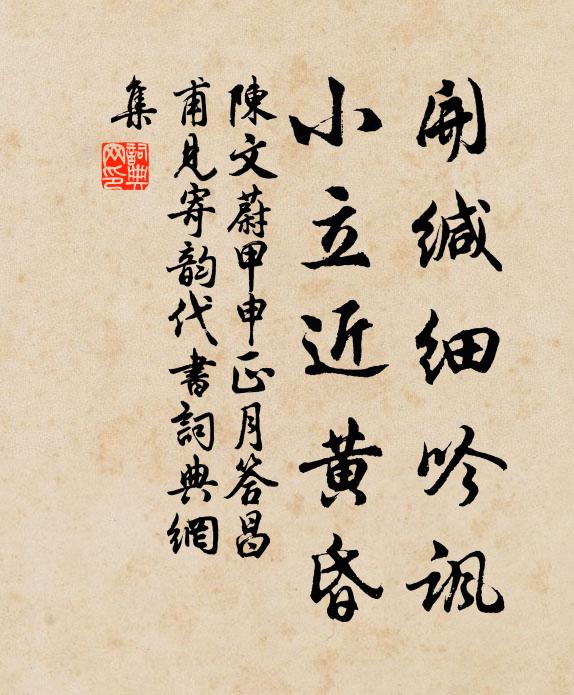 開緘細吟諷
小立近黄昏
陳文蔚甲申正月答昌
甫見寄韵代書詞典網
集
詞典網印